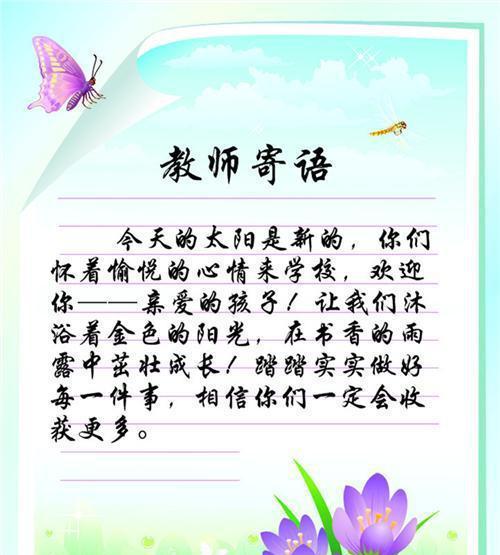 教师寄语
今天的太阳是新的，你们
怀着愉悦的心情来学校，欢迎
你——亲爱的孩子！让我们沐
浴着金色的阳光，在书香的雨
露中茁壮成长！踏踏实实做好
每一件事，相信你们一定会收
获更多。